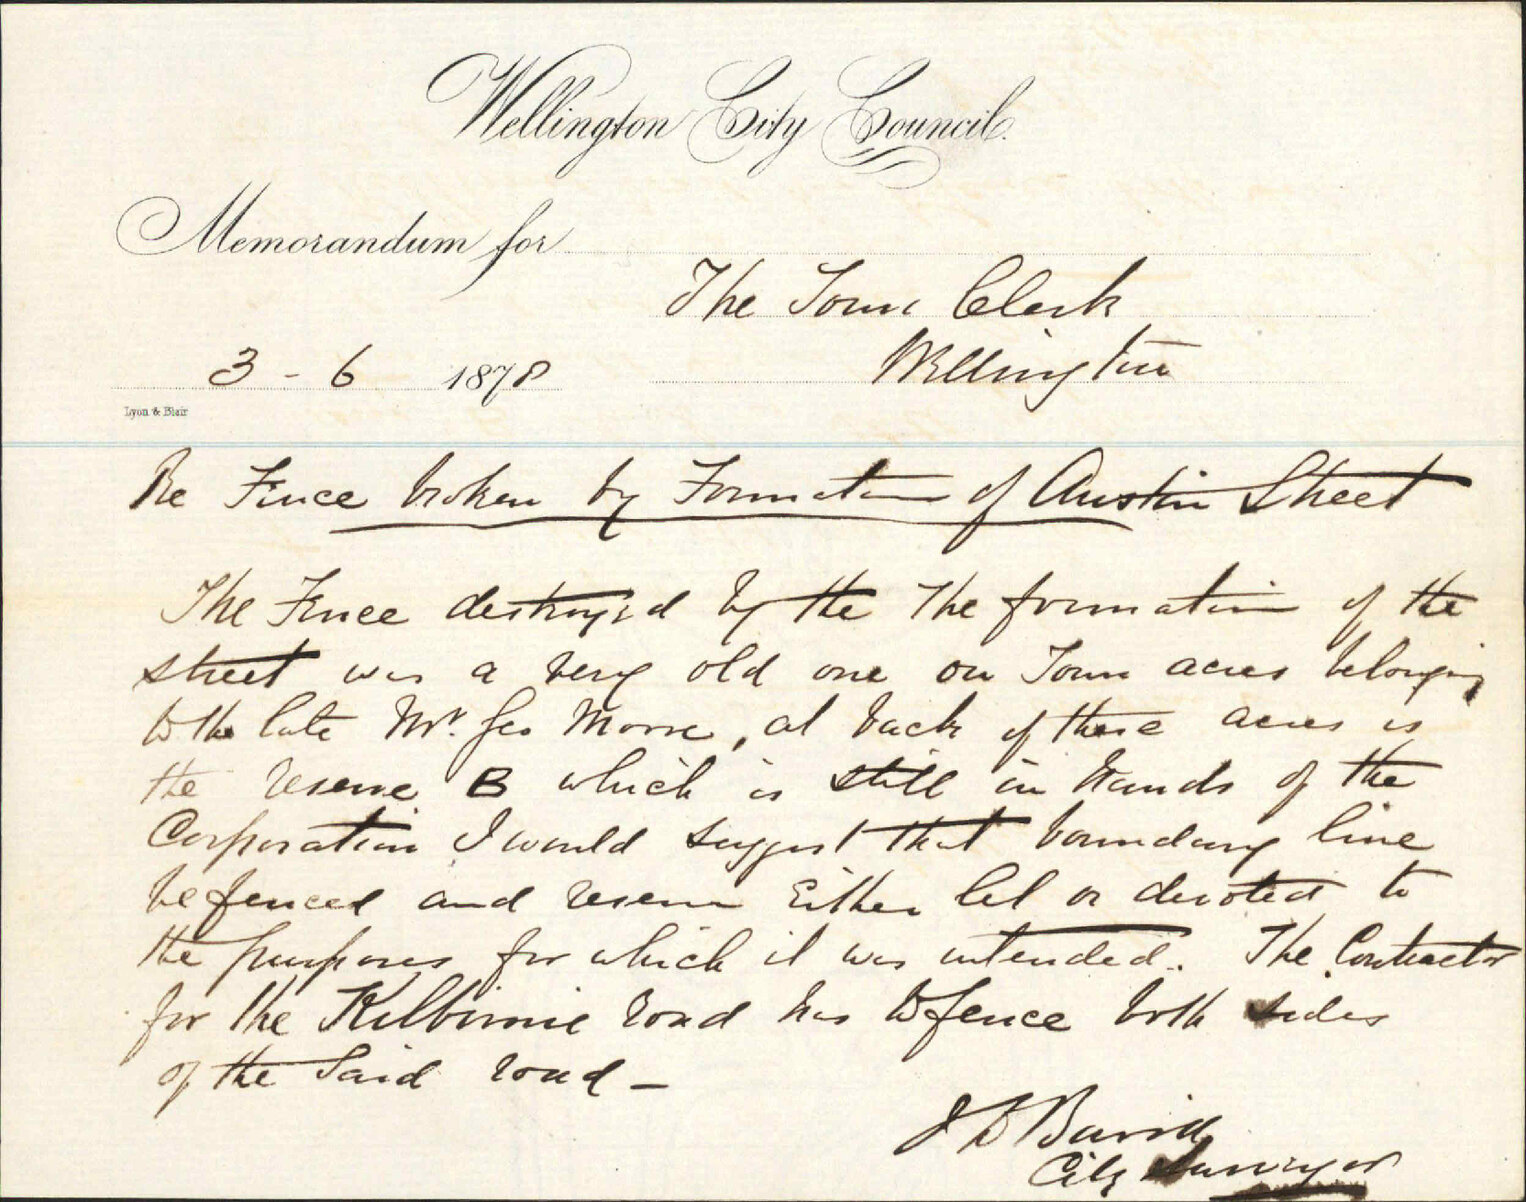 Wellington City Council.
Memorandum for
The Town Clerk
Wellington
3 - 6 1878
Lyon & Blair
Re Fence broken by Formation of Austin Street
The Fence destroyed by the The formation of the
street was a very old one on Town acres belonging
to the late Mr. Geo Moore, at back of these acres is
the reserve B which is still in hands of the
Corporation I would suggest that boundary line
be fenced and reserve Either let or devoted to
the purposes for which it was intended. The Contractor
for the Kilbirnie road has to fence both sides
of the Said road -
J D Baird
City Surveyor